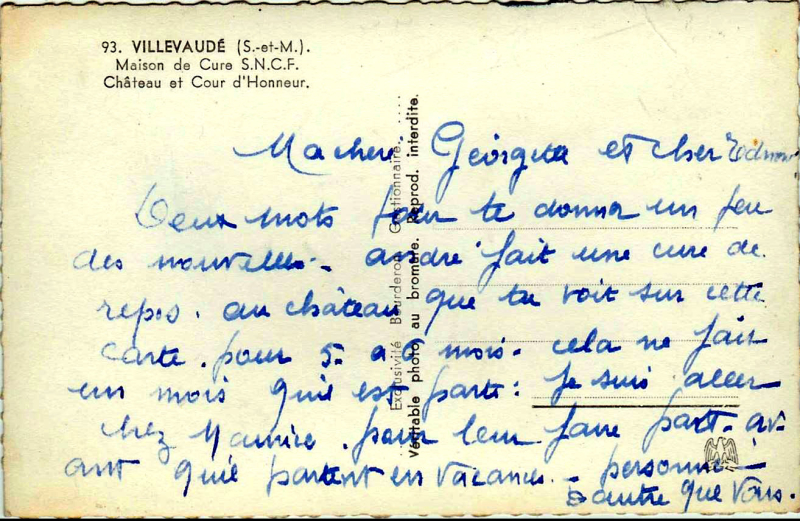 93. VILLEVAUDÉ (S.-et-M.).
Maison de Cure S.N.C.F.
Château et Cour d'Honneur.
Exclusivité Bourderon, Gestionnaire.
Véritable photo au bromure. Reprod. interdite.
Ma chere Georgette et cher Edmon
Deux mots pour te donner un peu
des nouvelles. andre fait une cure de
repos. au château que tu voit sur cette
carte. pour 5 a 6 mois. cela ne fait
un mois quil est parte : Je suis aller
chez Maurice. pour leur faire part. av-
ant quil partent en vacances. personne
autre que vous.